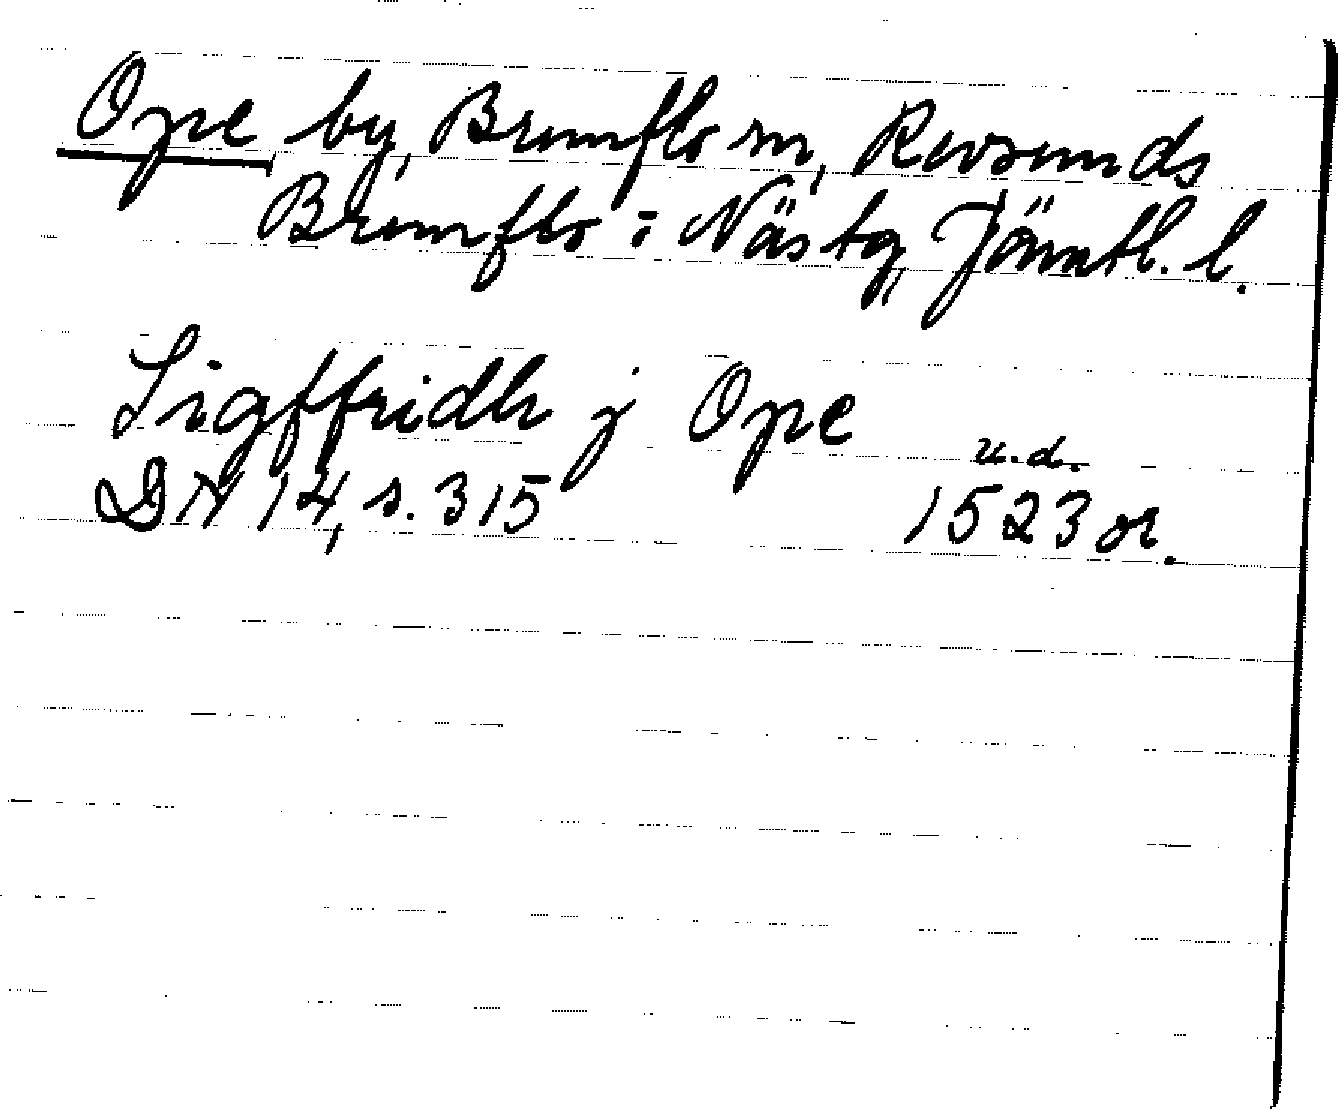 Ope by, Brunflo sn, Revsunds
Brunflo i Näs tg, Jämtl. l.
Sigffridh j Ope
u.d.
DN 14, s. 315 1523 or.